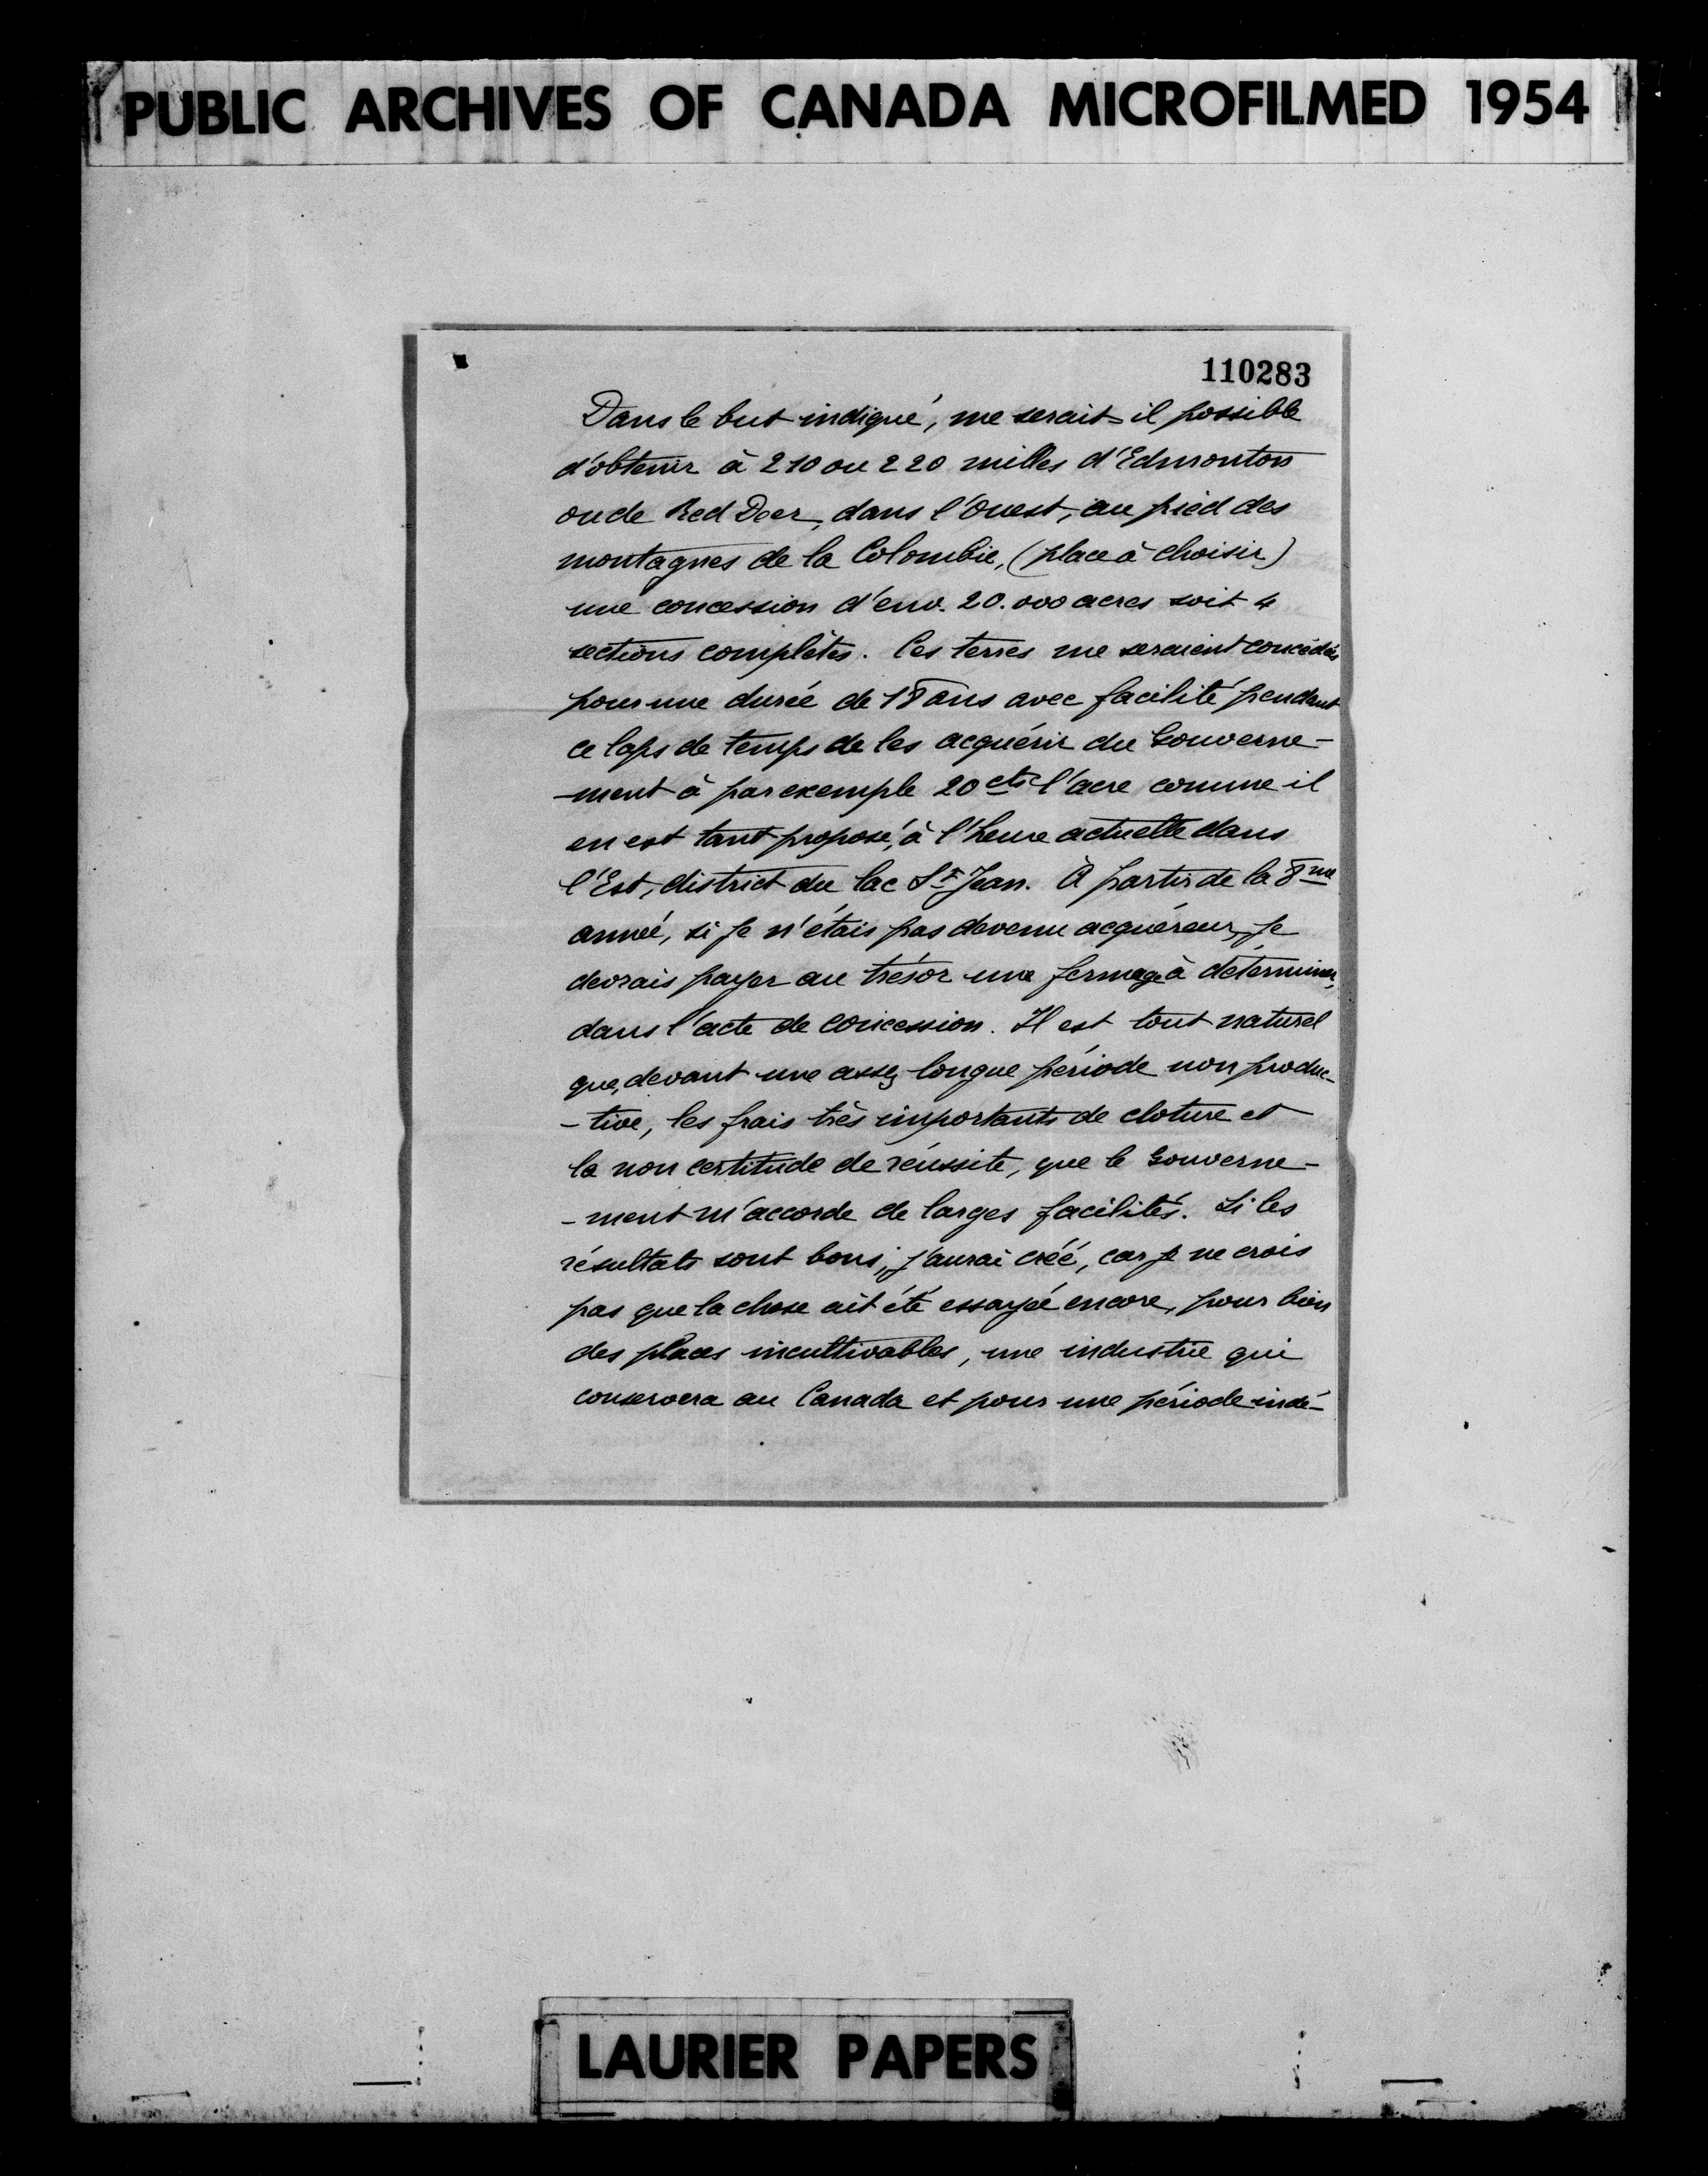 PUBLIC ARCHIVES OF CANADA MICROFILMED 1954
110283
Dans le but indiqué, me serait-il possible
d'obtenir à 210 ou 220 milles d'Edmonton
ou de Red Deer, dans l'Ouest, au pied des
montagnes de la Colombie, (place à choisir)
une concession d'env. 20.000 acres soit 4
sections complètes. Ces terres me seraient concédées
pour une durée de 18 ans avec facilité pendant
ce laps de temps de les acquérir du Gouverne-
-ment à par exemple 20 cts l'acre comme il
en est tant proposé, à l'heure actuelle dans
l'Est, district du lac St Jean. A partir de la 8me
année, si je n'étais pas devenu acquéreur, je
devrais payer au trésor une fermage à déterminer,
dans l'acte de concession. Il est tout naturel
que, devant une assez longue période non produc-
-tive, les frais très importants de cloture et
la non certitude de réussite, que le Gouverne-
-ment m'accorde de larges facilités. Si les
résultats sont bons, j'aurai créé, car je ne crois
pas que la chose ait été essayée encore, pour bien
des places incultivables, une industrie qui
conservera au Canada et pour une période indé-
LAURIER PAPERS